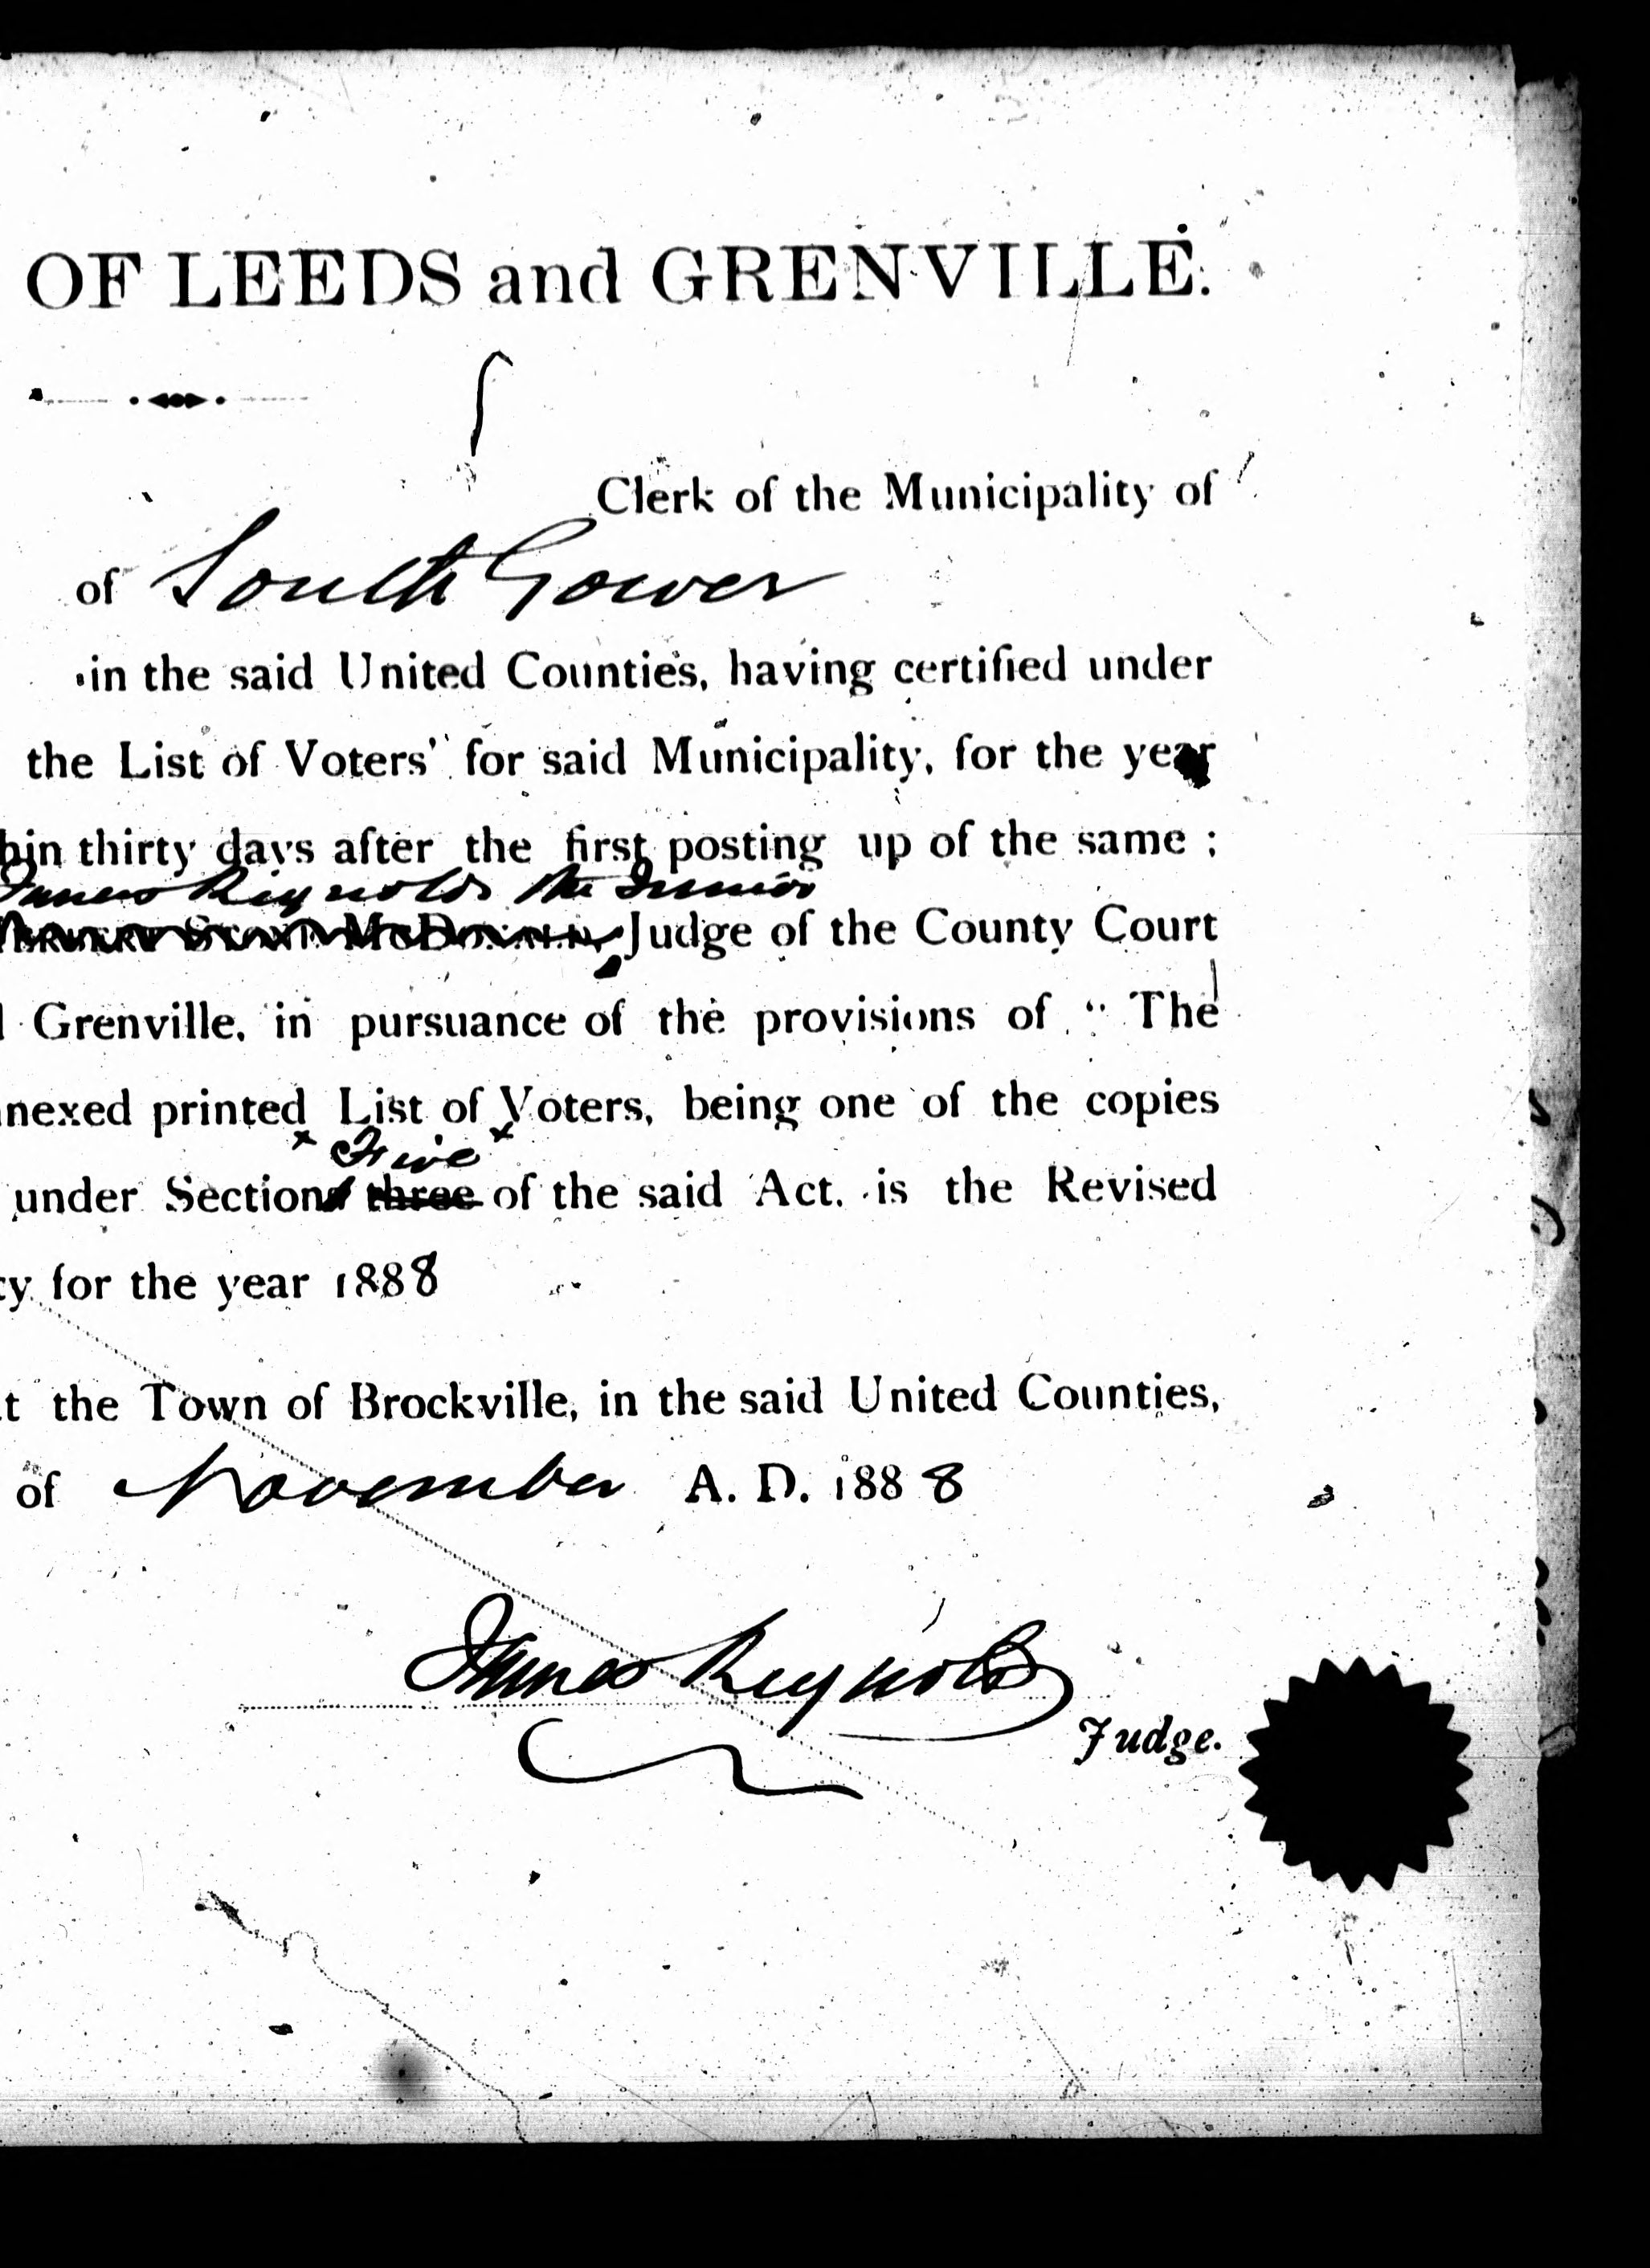 OF LEEDS and GRENVILLE.
Clerk of the Municipality of
of South Gower
in the said United Counties, having certified under
the List of Voters' for said Municipality, for the year
hin thirty days after the first posting up of the same ;
James Reynolds the Junior
McDonald, Judge of the County Court
d Grenville, in pursuance of the provisions of " The
nnexed printed List of Voters, being one of the copies
Five
under Sections three of the said Act. is the Revised
ty for the year 1888
at the Town of Brockville, in the said United Counties,
of November A. D. 1888
James Reynolds
Judge.